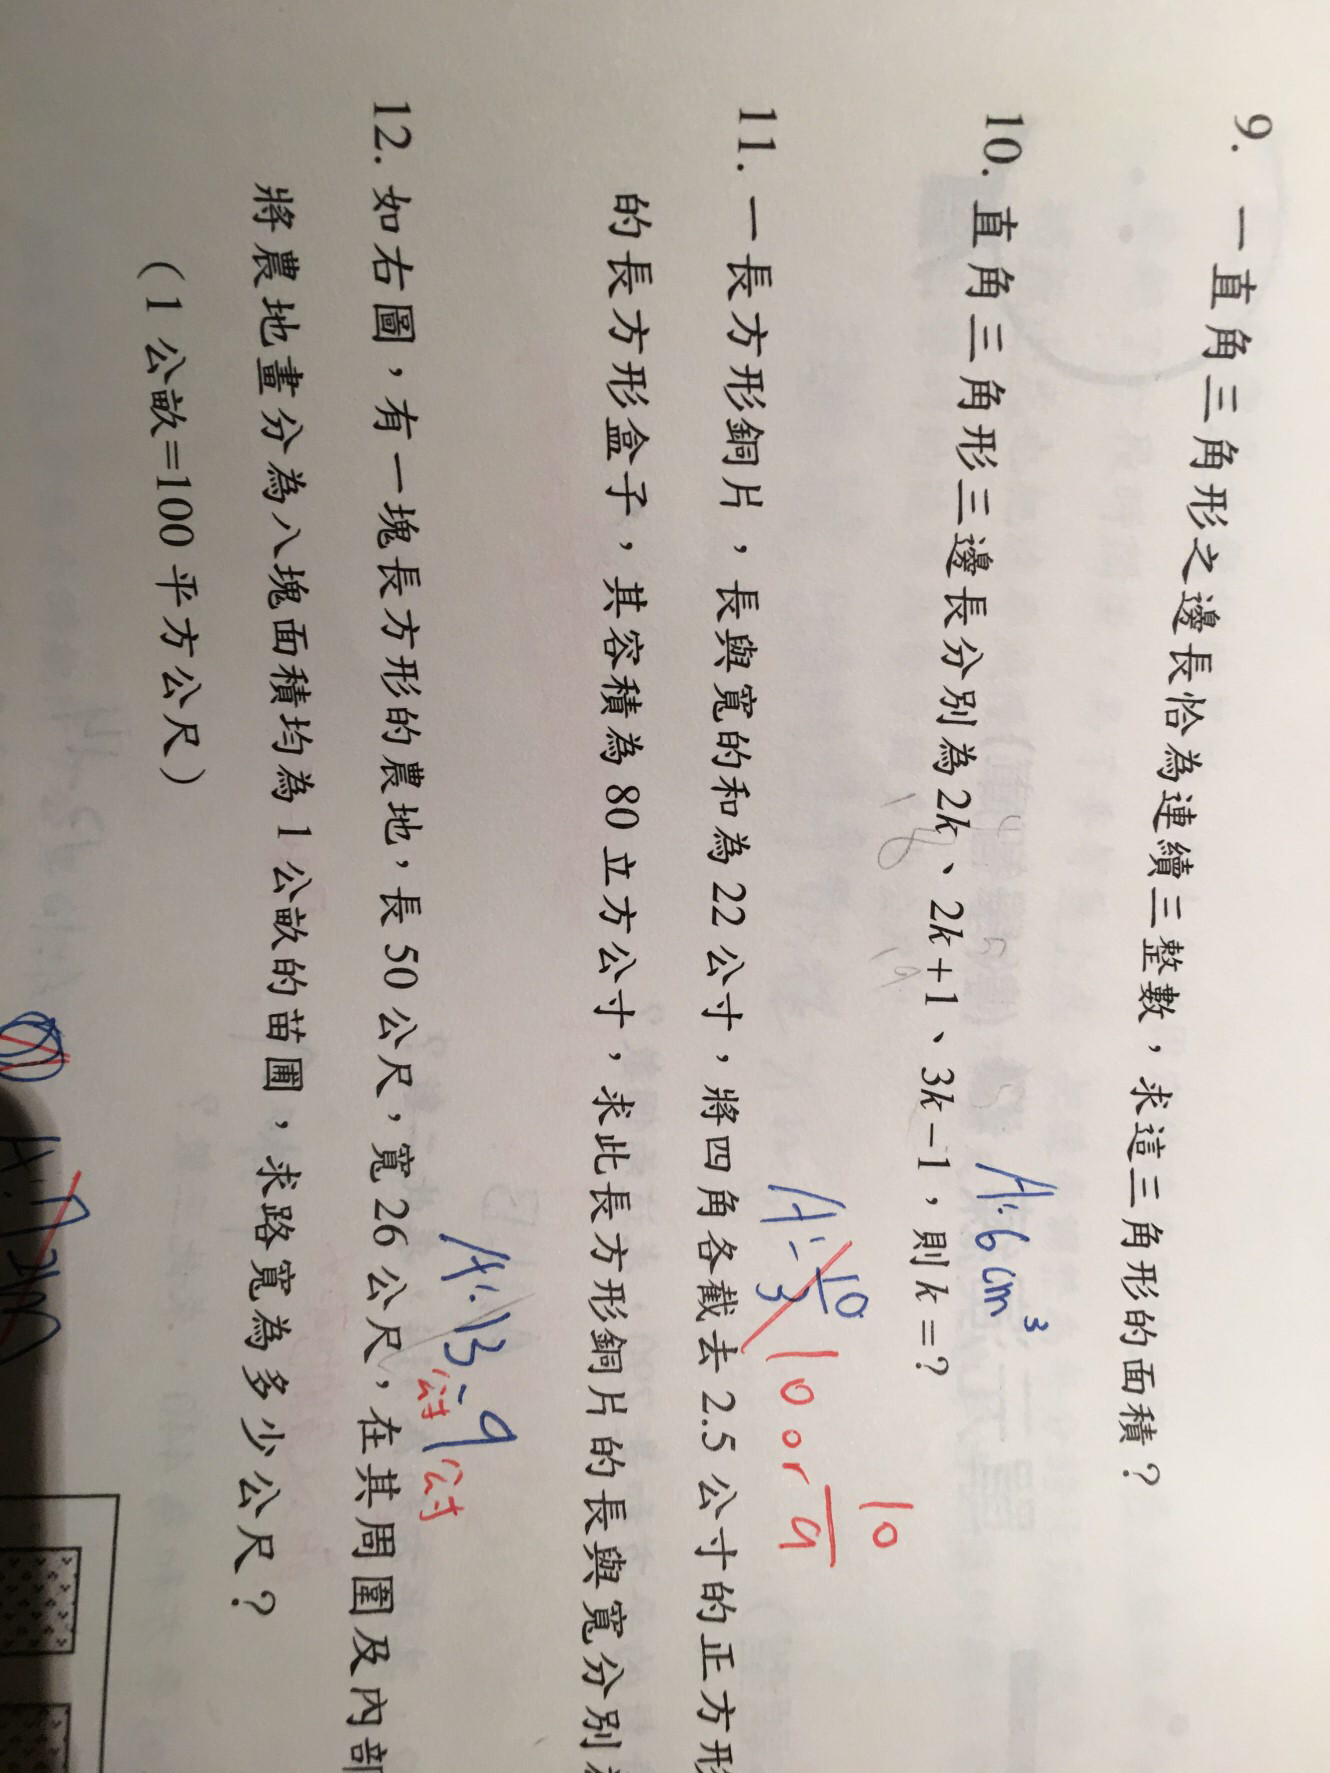 9. 一直角三角形之邊長恰為連續三整數，求這三角形的面積？
A:6cm³
10. 直角三角形三邊長分別為2k、2k+1、3k-1，則k=?
A:
10
3
10 or
10
9
11. 一長方形銅片，長與寬的和為22公寸，將四角各截去2.5公寸的正方形
的長方形盒子，其容積為80立方公寸，求此長方形銅片的長與寬分別
A:13公寸、9公寸
12. 如右圖，有一塊長方形的農地，長50公尺，寬26公尺，在其周圍及內部
將農地畫分為八塊面積均為1公畝的苗圃，求路寬為多少公尺？
（1公畝=100平方公尺）